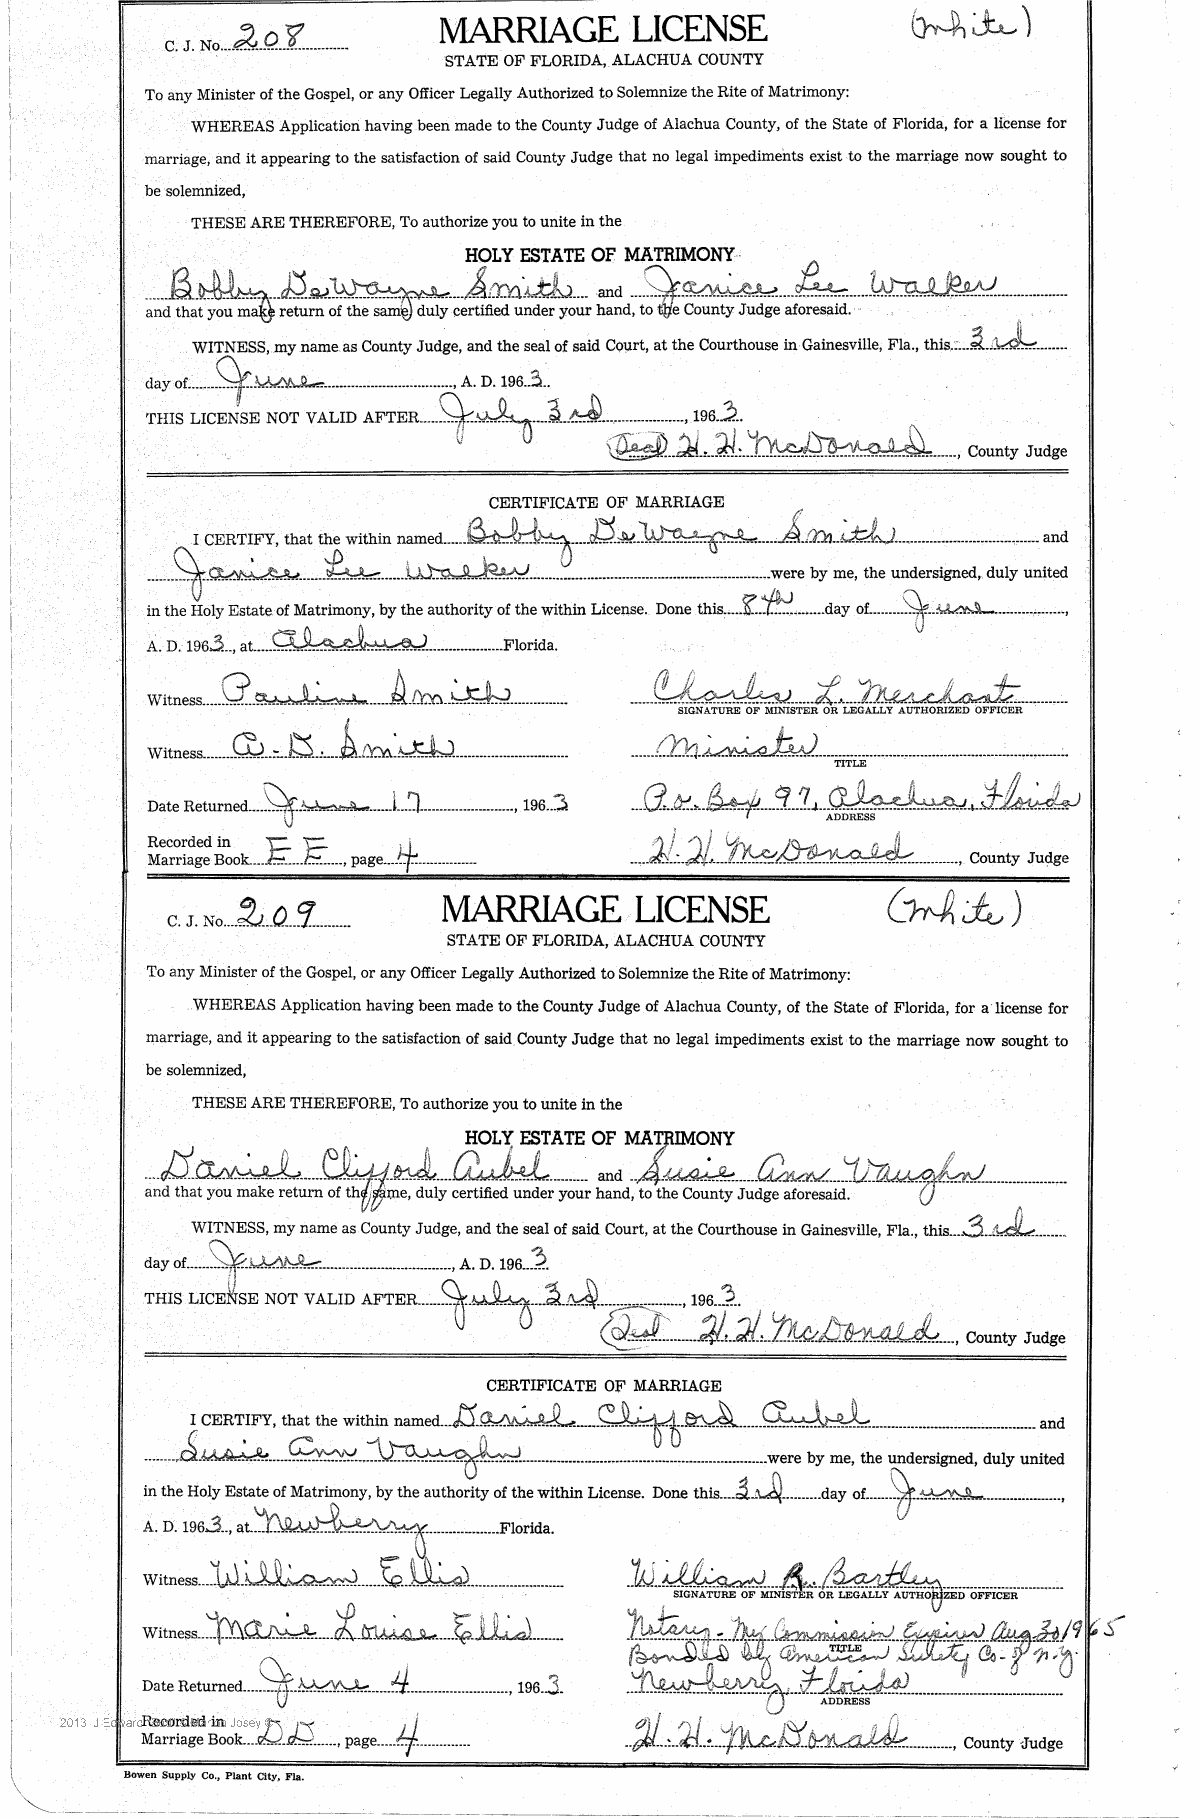 C. J. No. 208 MARRIAGE LICENSE (White)
STATE OF FLORIDA, ALACHUA COUNTY
To any Minister of the Gospel, or any Officer Legally Authorized to Solemnize the Rite of Matrimony:
WHEREAS Application having been made to the County Judge of Alachua County, of the State of Florida, for a license for
marriage, and it appearing to the satisfaction of said County Judge that no legal impediments exist to the marriage now sought to
be solemnized,
THESE ARE THEREFORE, To authorize you to unite in the
HOLY ESTATE OF MATRIMONY
Bobby DeWayne Smith and Janice Lee Walker
and that you make return of the same, duly certified under your hand, to the County Judge aforesaid.
WITNESS, my name as County Judge, and the seal of said Court, at the Courthouse in Gainesville, Fla., this 3rd
day of June, A. D. 1963.
THIS LICENSE NOT VALID AFTER July 3rd, 1963.
(Seal) H. H. McDonald, County Judge
CERTIFICATE OF MARRIAGE
I CERTIFY, that the within named Bobby DeWayne Smith and
Janice Lee Walker were by me, the undersigned, duly united
in the Holy Estate of Matrimony, by the authority of the within License. Done this 8th day of June,
A. D. 1963, at Alachua Florida.
Witness Pauline Smith Charles L. Merchant
SIGNATURE OF MINISTER OR LEGALLY AUTHORIZED OFFICER
Witness A. D. Smith Minister
TITLE
Date Returned June 17, 1963 P.O. Box 97, Alachua, Florida
ADDRESS
Recorded in
Marriage Book EE, page 4 H. H. McDonald, County Judge
C. J. No. 209 MARRIAGE LICENSE (White)
STATE OF FLORIDA, ALACHUA COUNTY
To any Minister of the Gospel, or any Officer Legally Authorized to Solemnize the Rite of Matrimony:
WHEREAS Application having been made to the County Judge of Alachua County, of the State of Florida, for a license for
marriage, and it appearing to the satisfaction of said County Judge that no legal impediments exist to the marriage now sought to
be solemnized,
THESE ARE THEREFORE, To authorize you to unite in the
HOLY ESTATE OF MATRIMONY
Daniel Clifford Aubel and Susie Ann Vaughn
and that you make return of the same, duly certified under your hand, to the County Judge aforesaid.
WITNESS, my name as County Judge, and the seal of said Court, at the Courthouse in Gainesville, Fla., this 3rd
day of June, A. D. 1963.
THIS LICENSE NOT VALID AFTER July 3rd, 1963.
(Seal) H. H. McDonald, County Judge
CERTIFICATE OF MARRIAGE
I CERTIFY, that the within named Daniel Clifford Aubel and
Susie Ann Vaughn were by me, the undersigned, duly united
in the Holy Estate of Matrimony, by the authority of the within License. Done this 3rd day of June,
A. D. 1963, at Newberry Florida.
Witness William Ellis William R. Bartley
SIGNATURE OF MINISTER OR LEGALLY AUTHORIZED OFFICER
Witness Marie Louise Ellis Notary - My Commission Expires Aug 30 1965
TITLE
Bonded by American Surety Co. of N.Y.
Date Returned June 4, 1963 Newberry, Florida
ADDRESS
2013 J Josey
Recorded in
Marriage Book DD, page 4 H. H. McDonald, County Judge
Bowen Supply Co., Plant City, Fla.